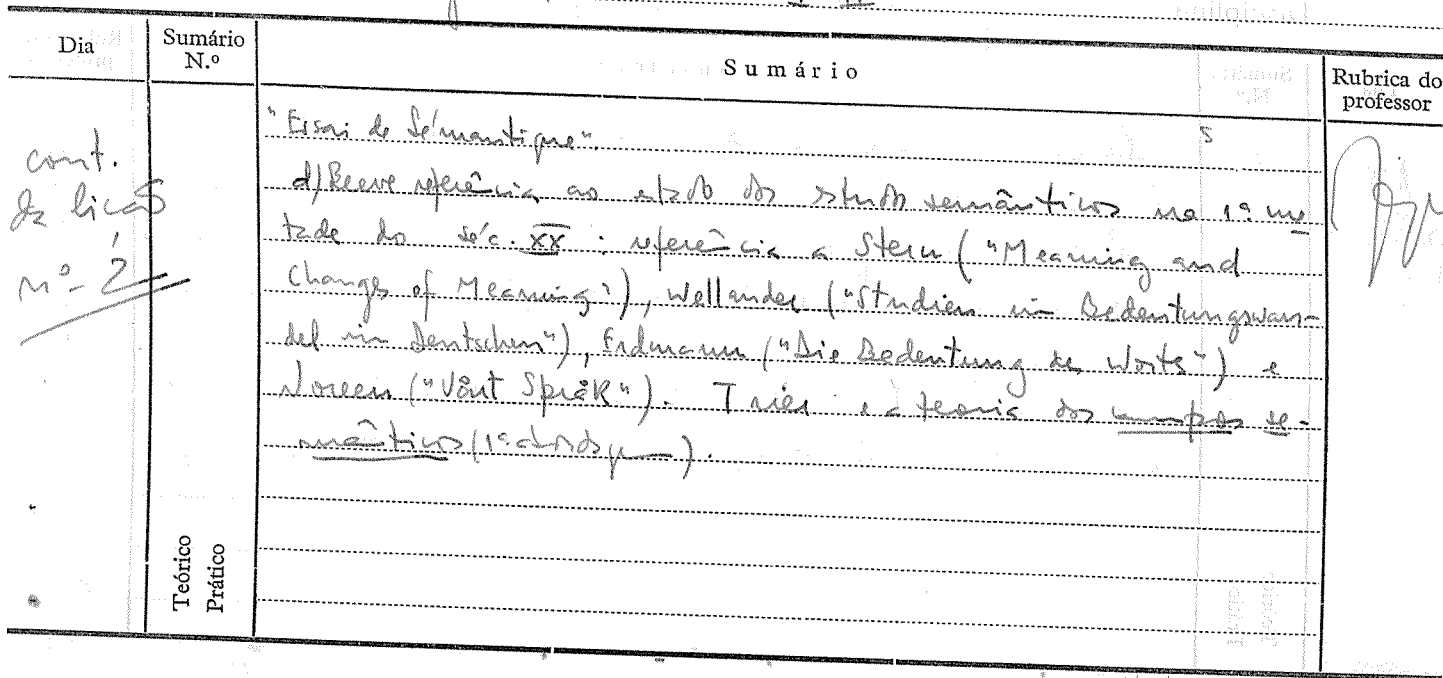 Dia
Sumário N.º
Sumário
Rubrica do professor
cont.
da lição
nº 2
"Essai de Sémantique".
d) Breve referência ao estado dos estudos semânticos na 1ª me
tade do séc. XX: referência a Stern ("Meaning and
Change of Meaning"), Wellander ("Studien im Bedeutungswan-
del im Deutschen"), Erdmann ("Die Bedeutung des Worts") e
Noreen ("Vårt Språk"). Trier e a teoria dos campos se-
mânticos (1ª abordagem).
Teórico
Prático